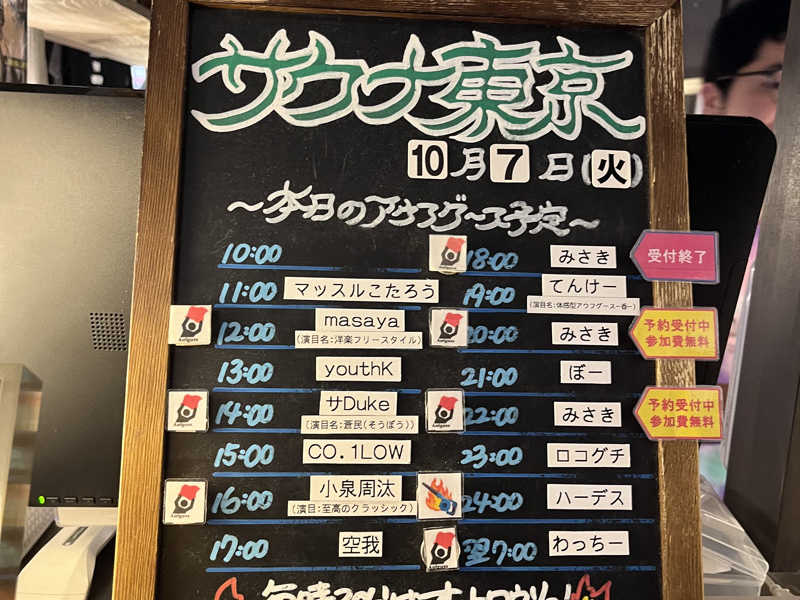 サウナ東京
10月7日(火)
～本日のアウフグース予定～
10:00
11:00 マッスルこたろう
12:00 masaya
(演目名:洋楽フリースタイル)
13:00 youthK
14:00 サDuke
(演目名:蒼民(そうぼう))
15:00 CO.1LOW
16:00 小泉周汰
(演目:至高のクラッシック)
17:00 空我
18:00 みさき 受付終了
19:00 てんけー
(演目名:体感型アウフグースー呑一)
20:00 みさき 予約受付中
参加費無料
21:00 ぼー
22:00 みさき 予約受付中
参加費無料
23:00 ロコグチ
24:00 ハーデス
翌7:00 わっちー